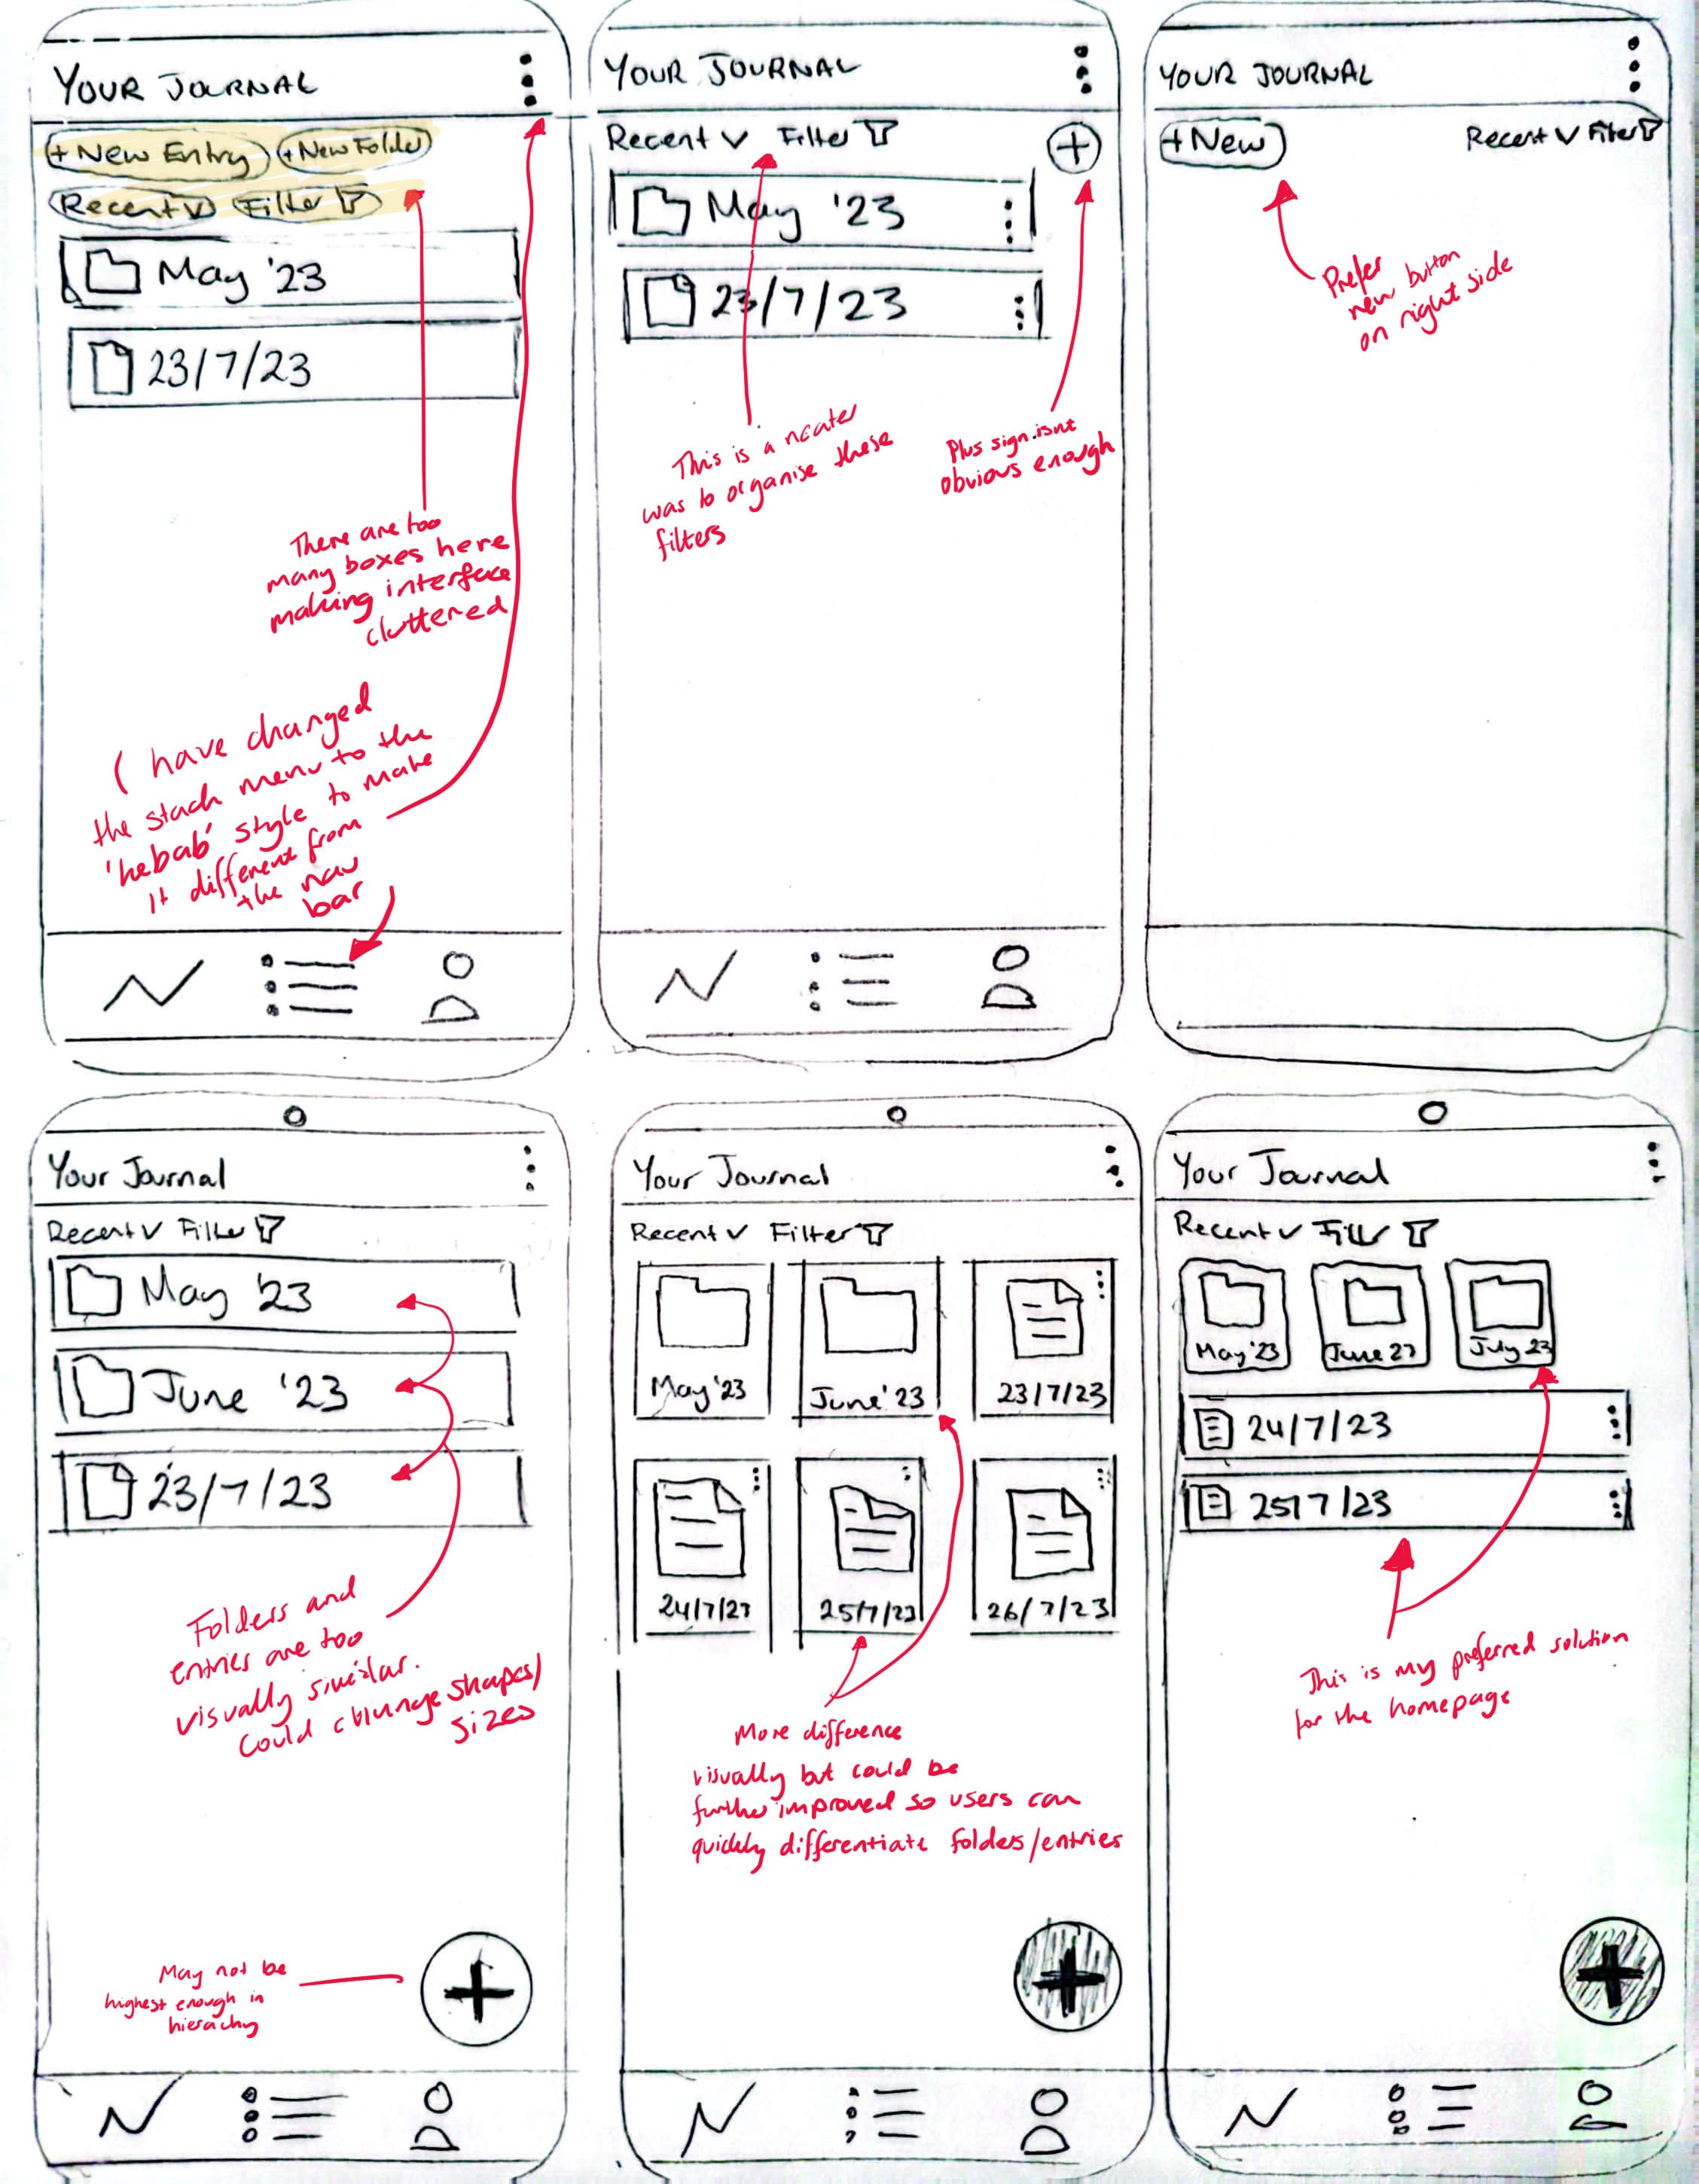 YOUR JOURNAL
+ New Entry
+ New Folder
Recent
Filter
May '23
23/7/23
There are too
many boxes here
making interface
cluttered
I have changed
the stack menu to the
'kebab' style to make
it different from
the nav
bar
YOUR JOURNAL
Recent Filter
+
May '23
23/7/23
This is a neater
was to organise these
filters
Plus sign isnt
obvious enough
YOUR JOURNAL
+ New
Recent Filter
Prefer
new button
on right side
Your Journal
Recent Filter
May '23
June '23
23/7/23
Folders and
entries are too
visually similar.
Could change shapes/
sizes
May not be
highest enough in
hierachy
+
Your Journal
Recent Filter
May '23
June '23
23/7/23
24/7/23
25/7/23
26/7/23
More difference
visually but could be
further improved so users can
quickly differentiate folders/entries
+
Your Journal
Recent Filter
May '23
June 23
July 23
24/7/23
25/7/23
This is my preferred solution
for the homepage
+